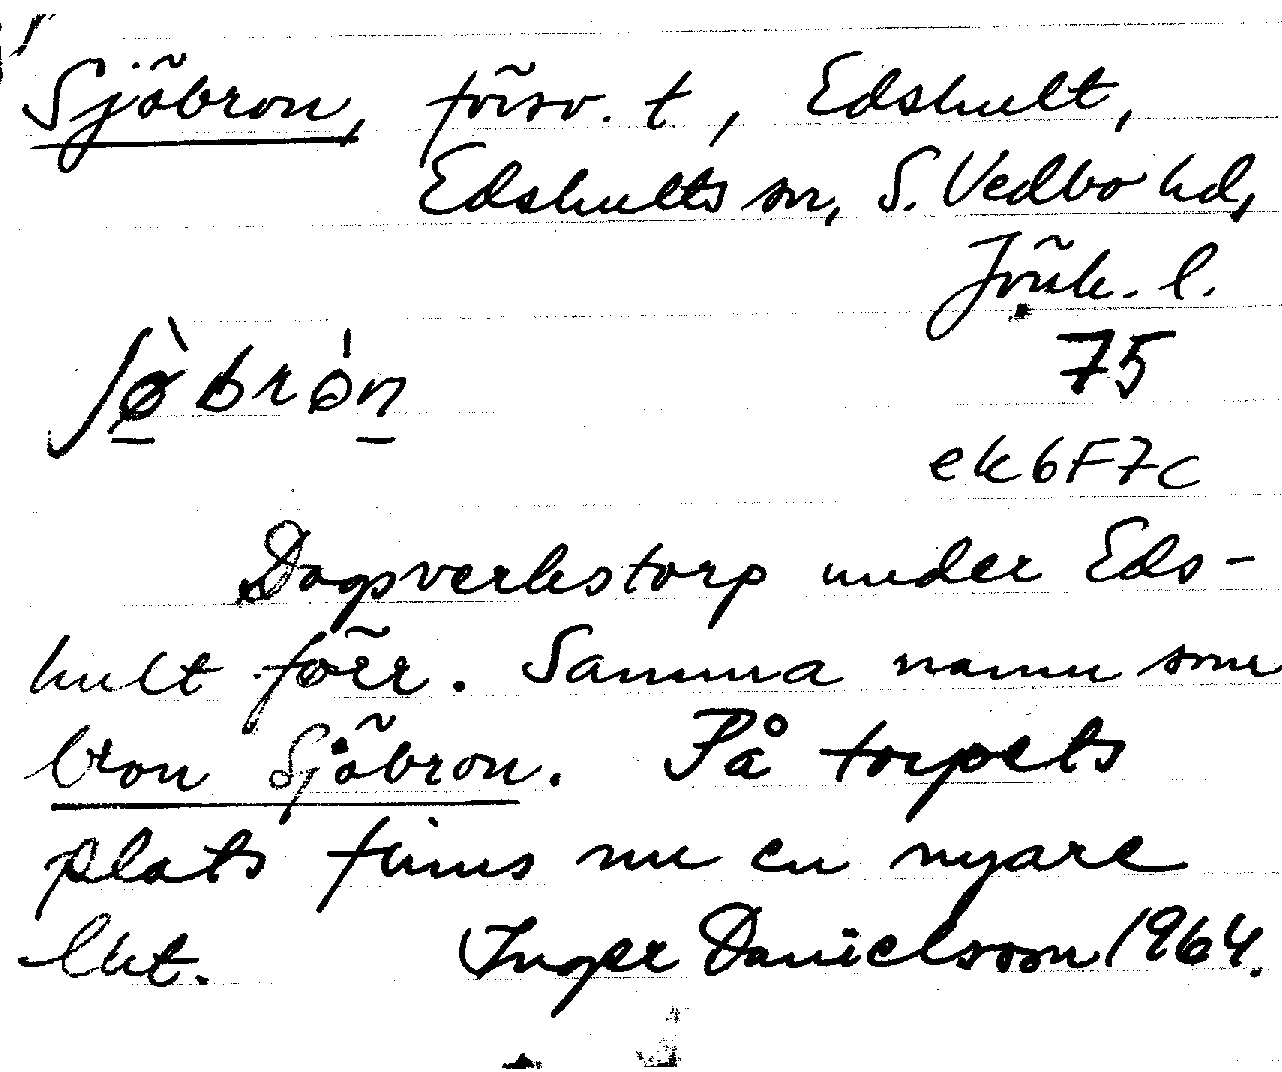 Sjöbron, försv. t, Edshult,
Edshults sn, S. Vedbo hd,
Jönk. l.
ʃø̀brón
75
ek 6F7c
Dagsverkstorp under Eds-
hult förr. Samma namn som
bron Sjöbron. På torpets
plats finns nu en nyare
lht. Inger Danielsson 1964.